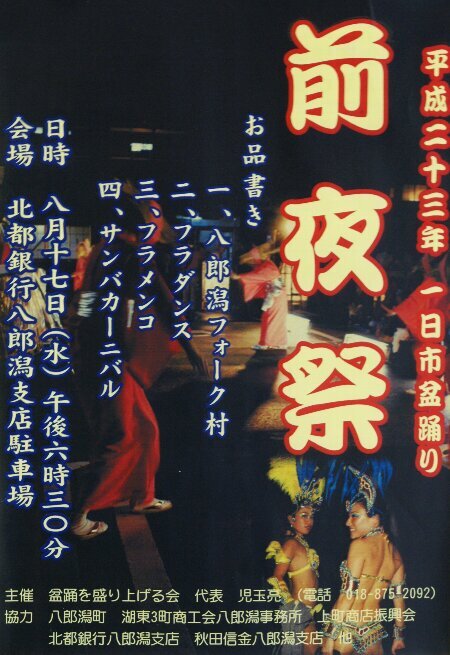 平成二十三年 一日市盆踊り
前夜祭
お品書き
一、八郎潟フォーク村
二、フラダンス
三、フラメンコ
四、サンバカーニバル
日時 八月十七日（水）午後六時三〇分
会場 北都銀行八郎潟支店駐車場
主催 盆踊を盛り上げる会 代表 児玉亮 （電話 018-875-2092）
協力 八郎潟町 湖東3町商工会八郎潟事務所 上町商店振興会
北都銀行八郎潟支店 秋田信金八郎潟支店 他